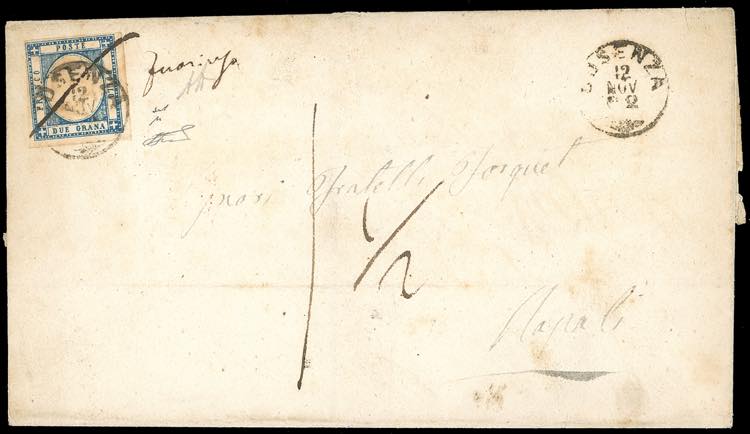 POSTE
FRANCO
BOLLO
DUE GRANA
COSENZA
12
NOV
fuori uso
COSENZA
12
NOV
62
1 1/2
Fratelli Forquet
Napoli